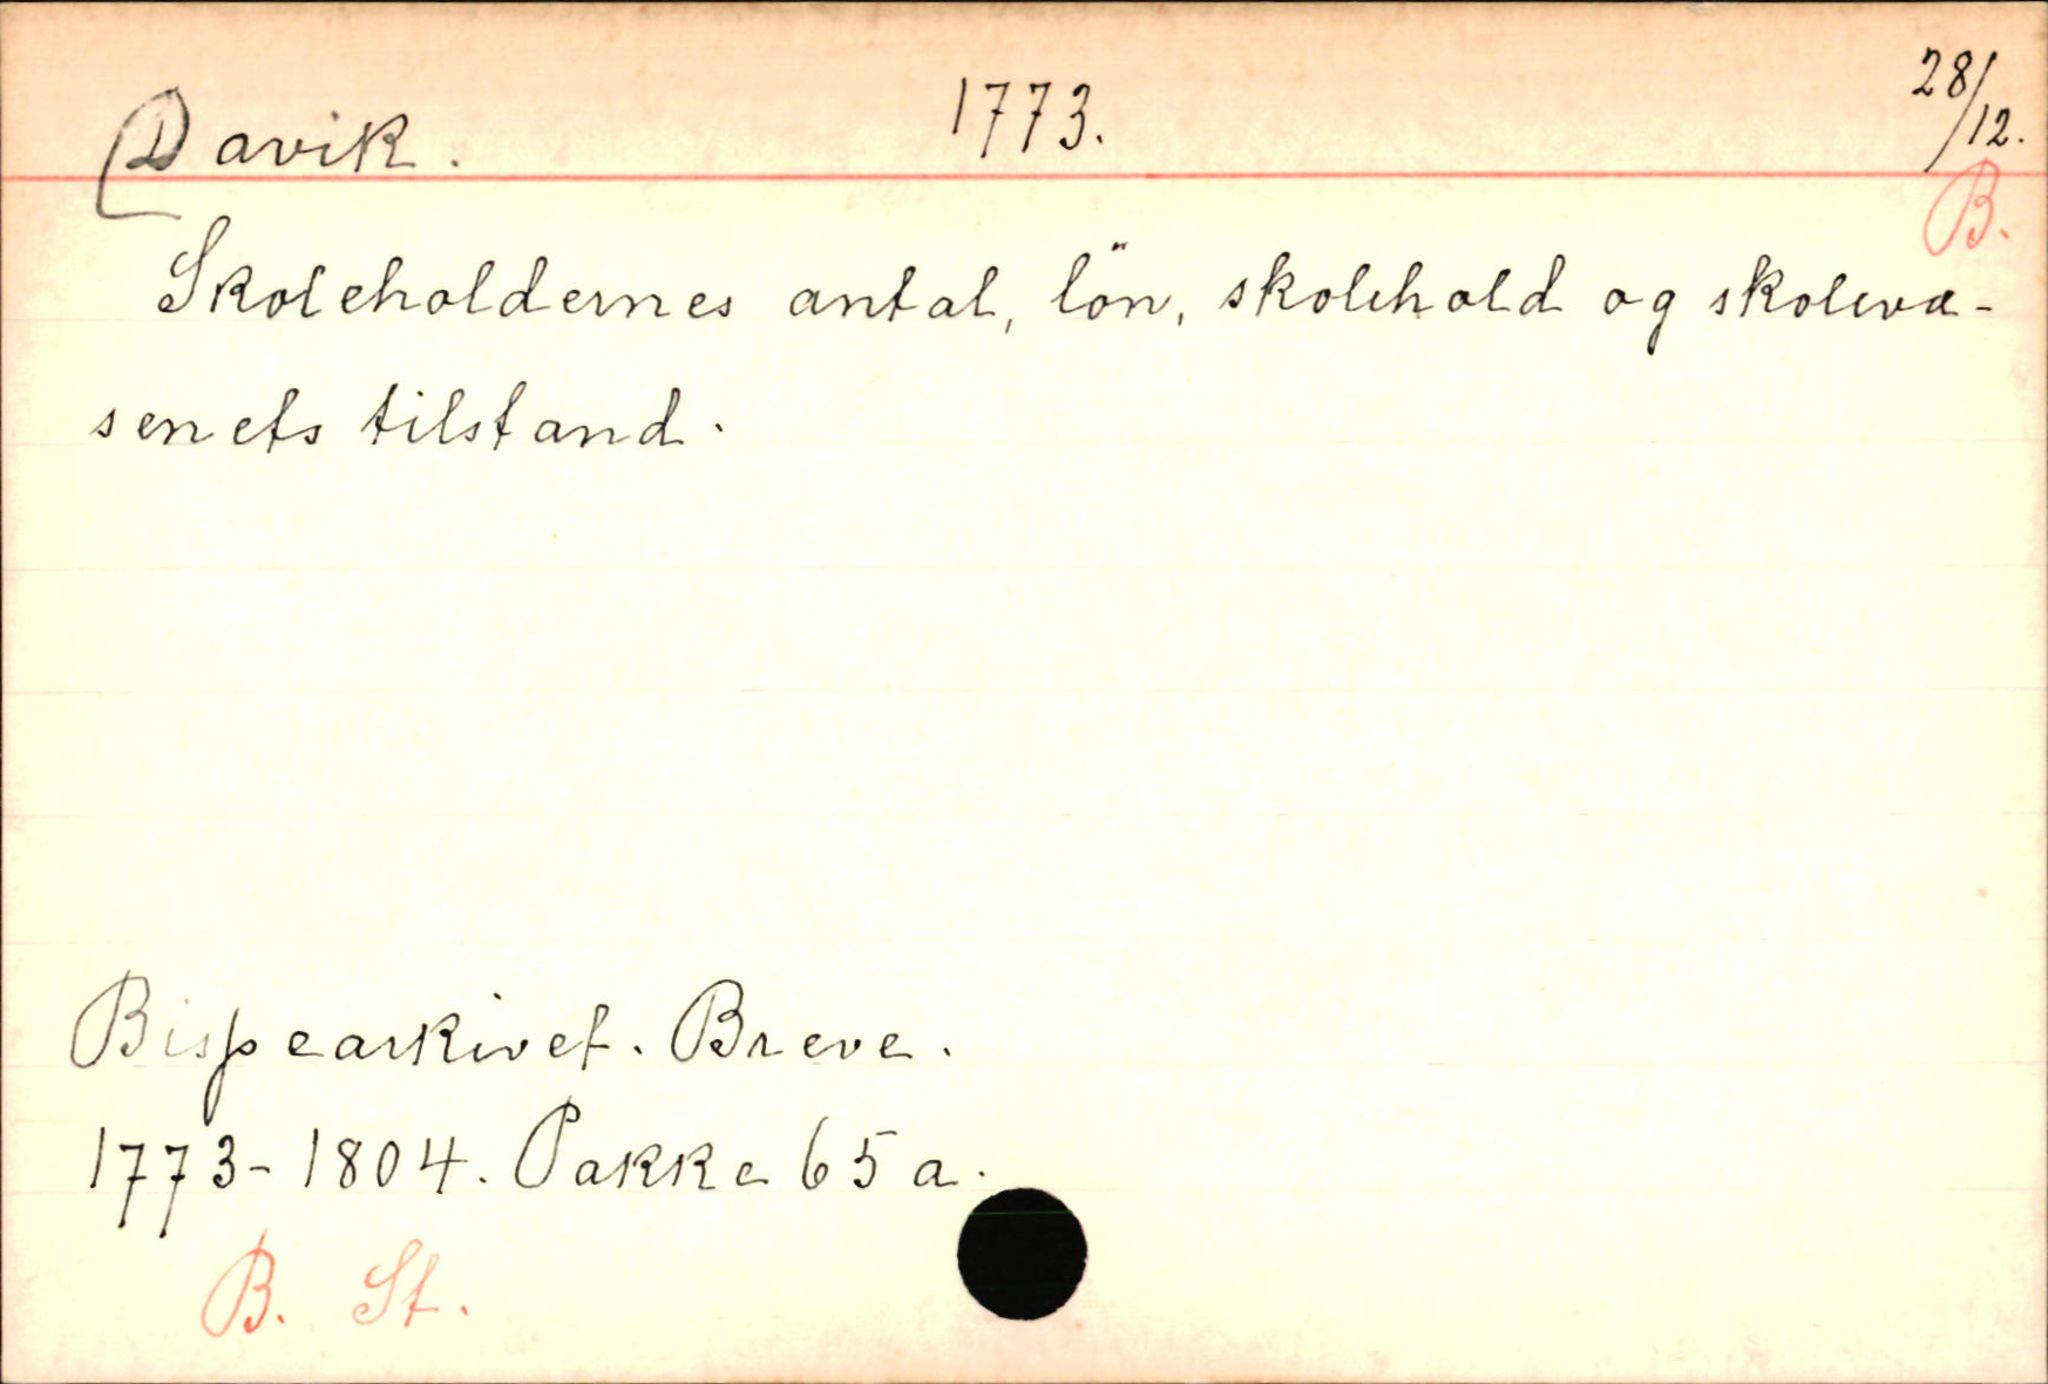 Davik. 1773. 28/12.
B.
Skoleholdernes antal, lön, skolehold og skolevæ-
senets tilstand.
Bispearkivet. Breve.
1773-1804. Pakke 65a.
B. St.